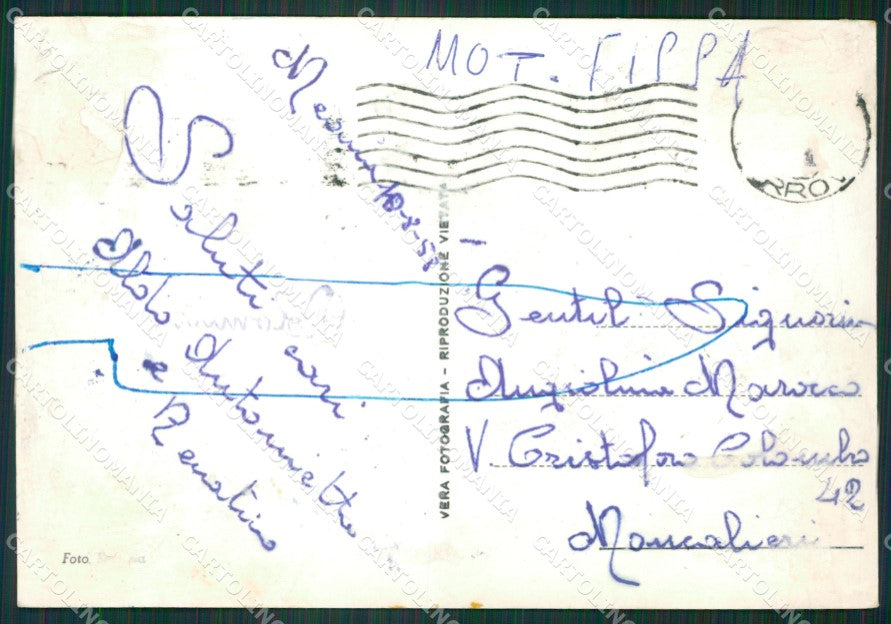 MOT. FIPPA
Saluti cari
Aldo e Antonietta
Renatino
VERA FOTOGRAFIA - RIPRODUZIONE VIETATA
RRO
Gentil Signorina
Angiolina Marocco
V. Cristoforo Colombo
42
Moncalieri
Foto
CARTOLINOMANIA